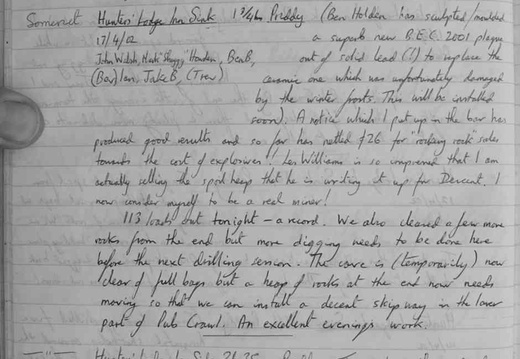 Somerset Hunters' Lodge Inn Sink 1¾hrs Priddy (Ben Holden has sculpted/moulded
17/4/02 a superb new B.E.C. 2001 plaque
John Walsh, Mark "Shaggy" Howden, Ben B, out of solid lead (!) to replace the
(Bar)Ian, Jake B, (Trev) ceramic one which was unfortunately damaged
by the winter frosts. This will be installed
soon). A notice which I put up in the bar has
produced good results and so far has netted £26 for "rocking rock" sales
towards the cost of explosives! Les Williams is so impressed that I am
actually selling the spoil heap that he is writing it up for Descent. I
now consider myself to be a real miner!
113 loads out tonight - a record. We also cleared a few more
rocks from the end but more digging needs to be done here
before the next drilling session. The cave is (temporarily) now
clear of full bags but a heap of rocks at the end now needs
moving so that we can install a decent skipway in the lower
part of Pub Crawl. An excellent evenings work.